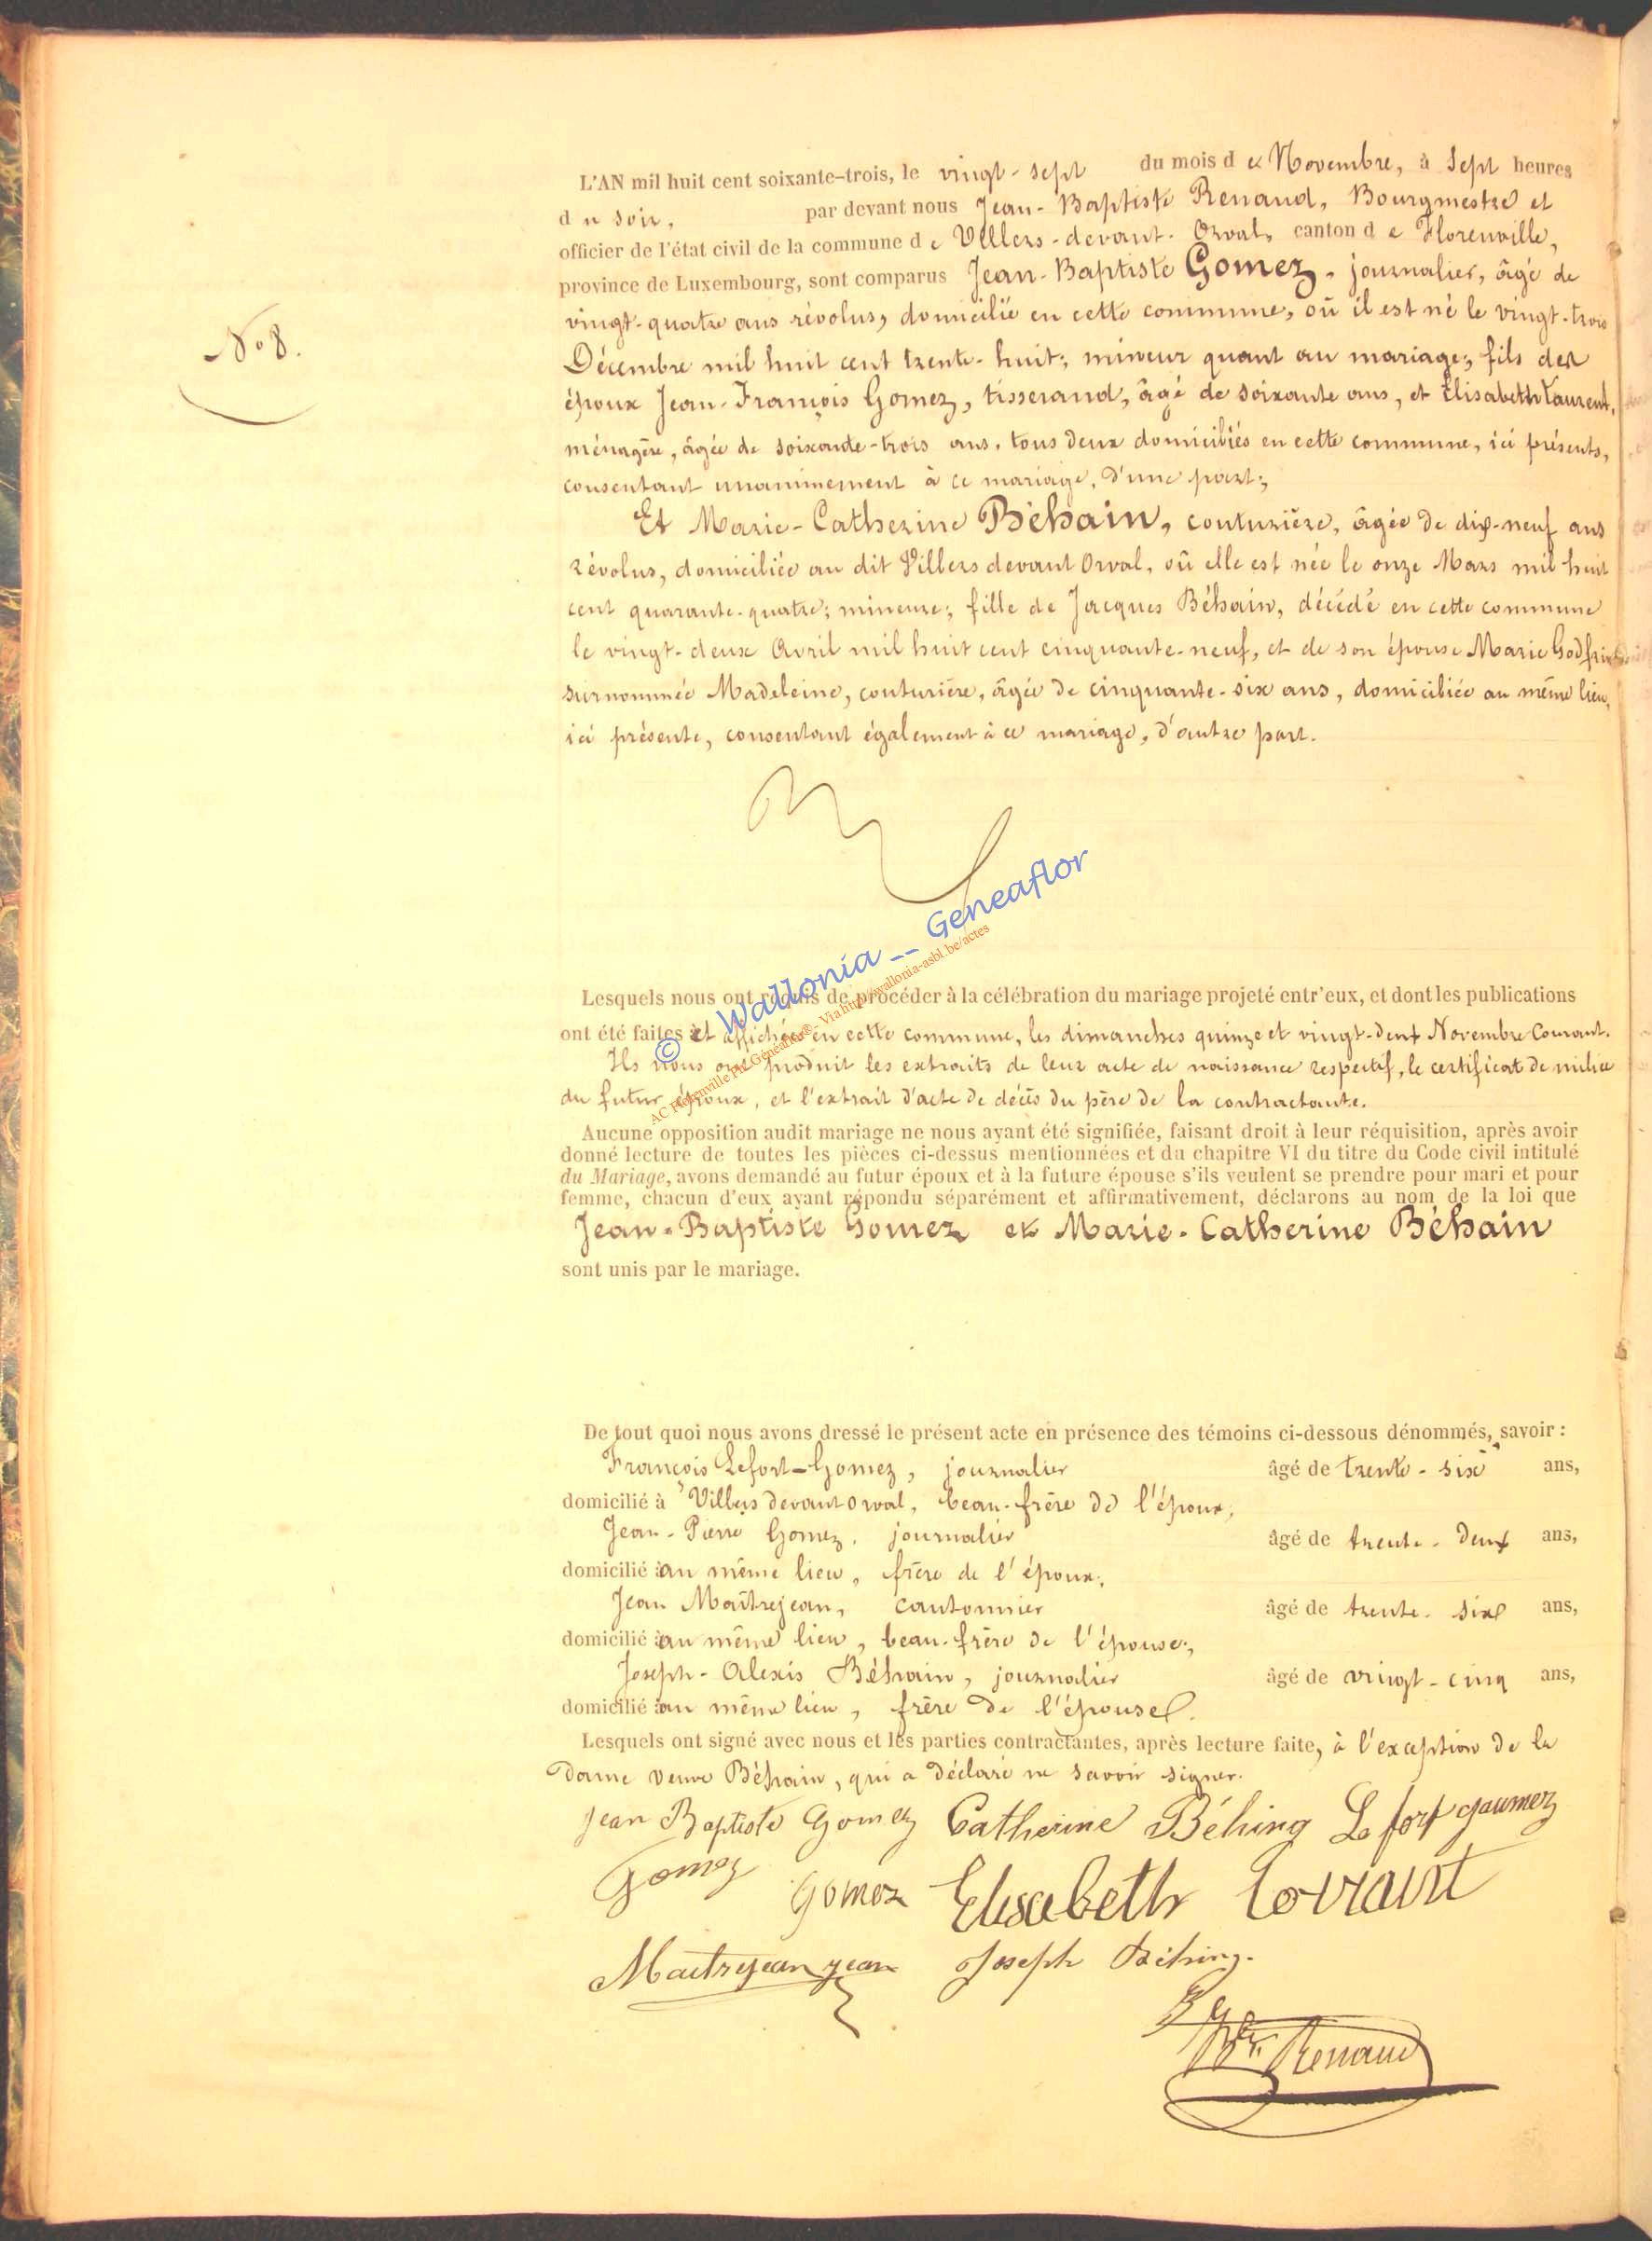 L'AN mil huit cent soixante-trois, le vingt-sept du mois de Novembre, à Sept heures
du soir, par devant nous Jean-Baptiste Renaud, Bourgmestre et
officier de l'état civil de la commune de Villers-devant-Orval, canton de Florenville,
province de Luxembourg, sont comparus Jean-Baptiste Gomez, journalier, âgé de
vingt-quatre ans révolus, domicilié en cette commune, où il est né le vingt-trois
N° 8.
Décembre mil huit cent trente-huit; mineur quant au mariage; fils des
époux Jean-François Gomez, tisserand, âgé de soixante ans, et Elisabeth Laurent,
ménagère, âgée de soixante-trois ans, tous deux domiciliés en cette commune, ici présents,
consentant unanimement à ce mariage, d'une part;
Et Marie-Catherine Béhain, couturière, âgée de dix-neuf ans
révolus, domiciliée au dit Villers devant Orval, où elle est née le onze Mars mil huit
cent quarante-quatre; mineure; fille de Jacques Béhain, décédé en cette commune
le vingt-deux Avril mil huit cent cinquante-neuf, et de son épouse Marie
surnommée Madeleine, couturière, âgée de cinquante-six ans, domiciliée au même lieu,
ici présente, consentant également à ce mariage, d'autre part.
© Wallonia -- Geneaflor
AC Florenville Par Généaflor®. Via http://wallonia-asbl.be/actes
Lesquels nous ont requis de procéder à la célébration du mariage projeté entr'eux, et dont les publications
ont été faites et affichées en cette commune, les dimanches quinze et vingt-deux Novembre Courant.
Ils nous ont produit les extraits de leur acte de naissance respectif, le certificat de milice
du futur époux, et l'extrait d'acte de décès du père de la contractante.
Aucune opposition audit mariage ne nous ayant été signifiée, faisant droit à leur réquisition, après avoir
donné lecture de toutes les pièces ci-dessus mentionnées et du chapitre VI du titre du Code civil intitulé
du Mariage, avons demandé au futur époux et à la future épouse s'ils veulent se prendre pour mari et pour
femme, chacun d'eux ayant répondu séparément et affirmativement, déclarons au nom de la loi que
Jean-Baptiste Gomez et Marie-Catherine Béhain
sont unis par le mariage.
De tout quoi nous avons dressé le présent acte en présence des témoins ci-dessous dénommés, savoir :
François Lefort-Gomez, journalier âgé de trente-six ans,
domicilié à Villers devant Orval, beau-frère de l'époux;
Jean-Pierre Gomez, journalier âgé de trente-deux ans,
domicilié au même lieu, frère de l'époux;
Jean Maîtrejean, cantonnier âgé de trente-six ans,
domicilié au même lieu, beau-frère de l'épouse;
Joseph-Alexis Béhain, journalier âgé de vingt-cinq ans,
domicilié au même lieu, frère de l'épouse.
Lesquels ont signé avec nous et les parties contractantes, après lecture faite, à l'exception de la
Dame Veuve Béhain, qui a déclaré ne savoir signer.
Jean Baptiste Gomez Catherine Béhing Lefort gaumez
Gomez Gomez Elisabeth Lorrant
Maitrejean jean Joseph Béhing.
Renaud